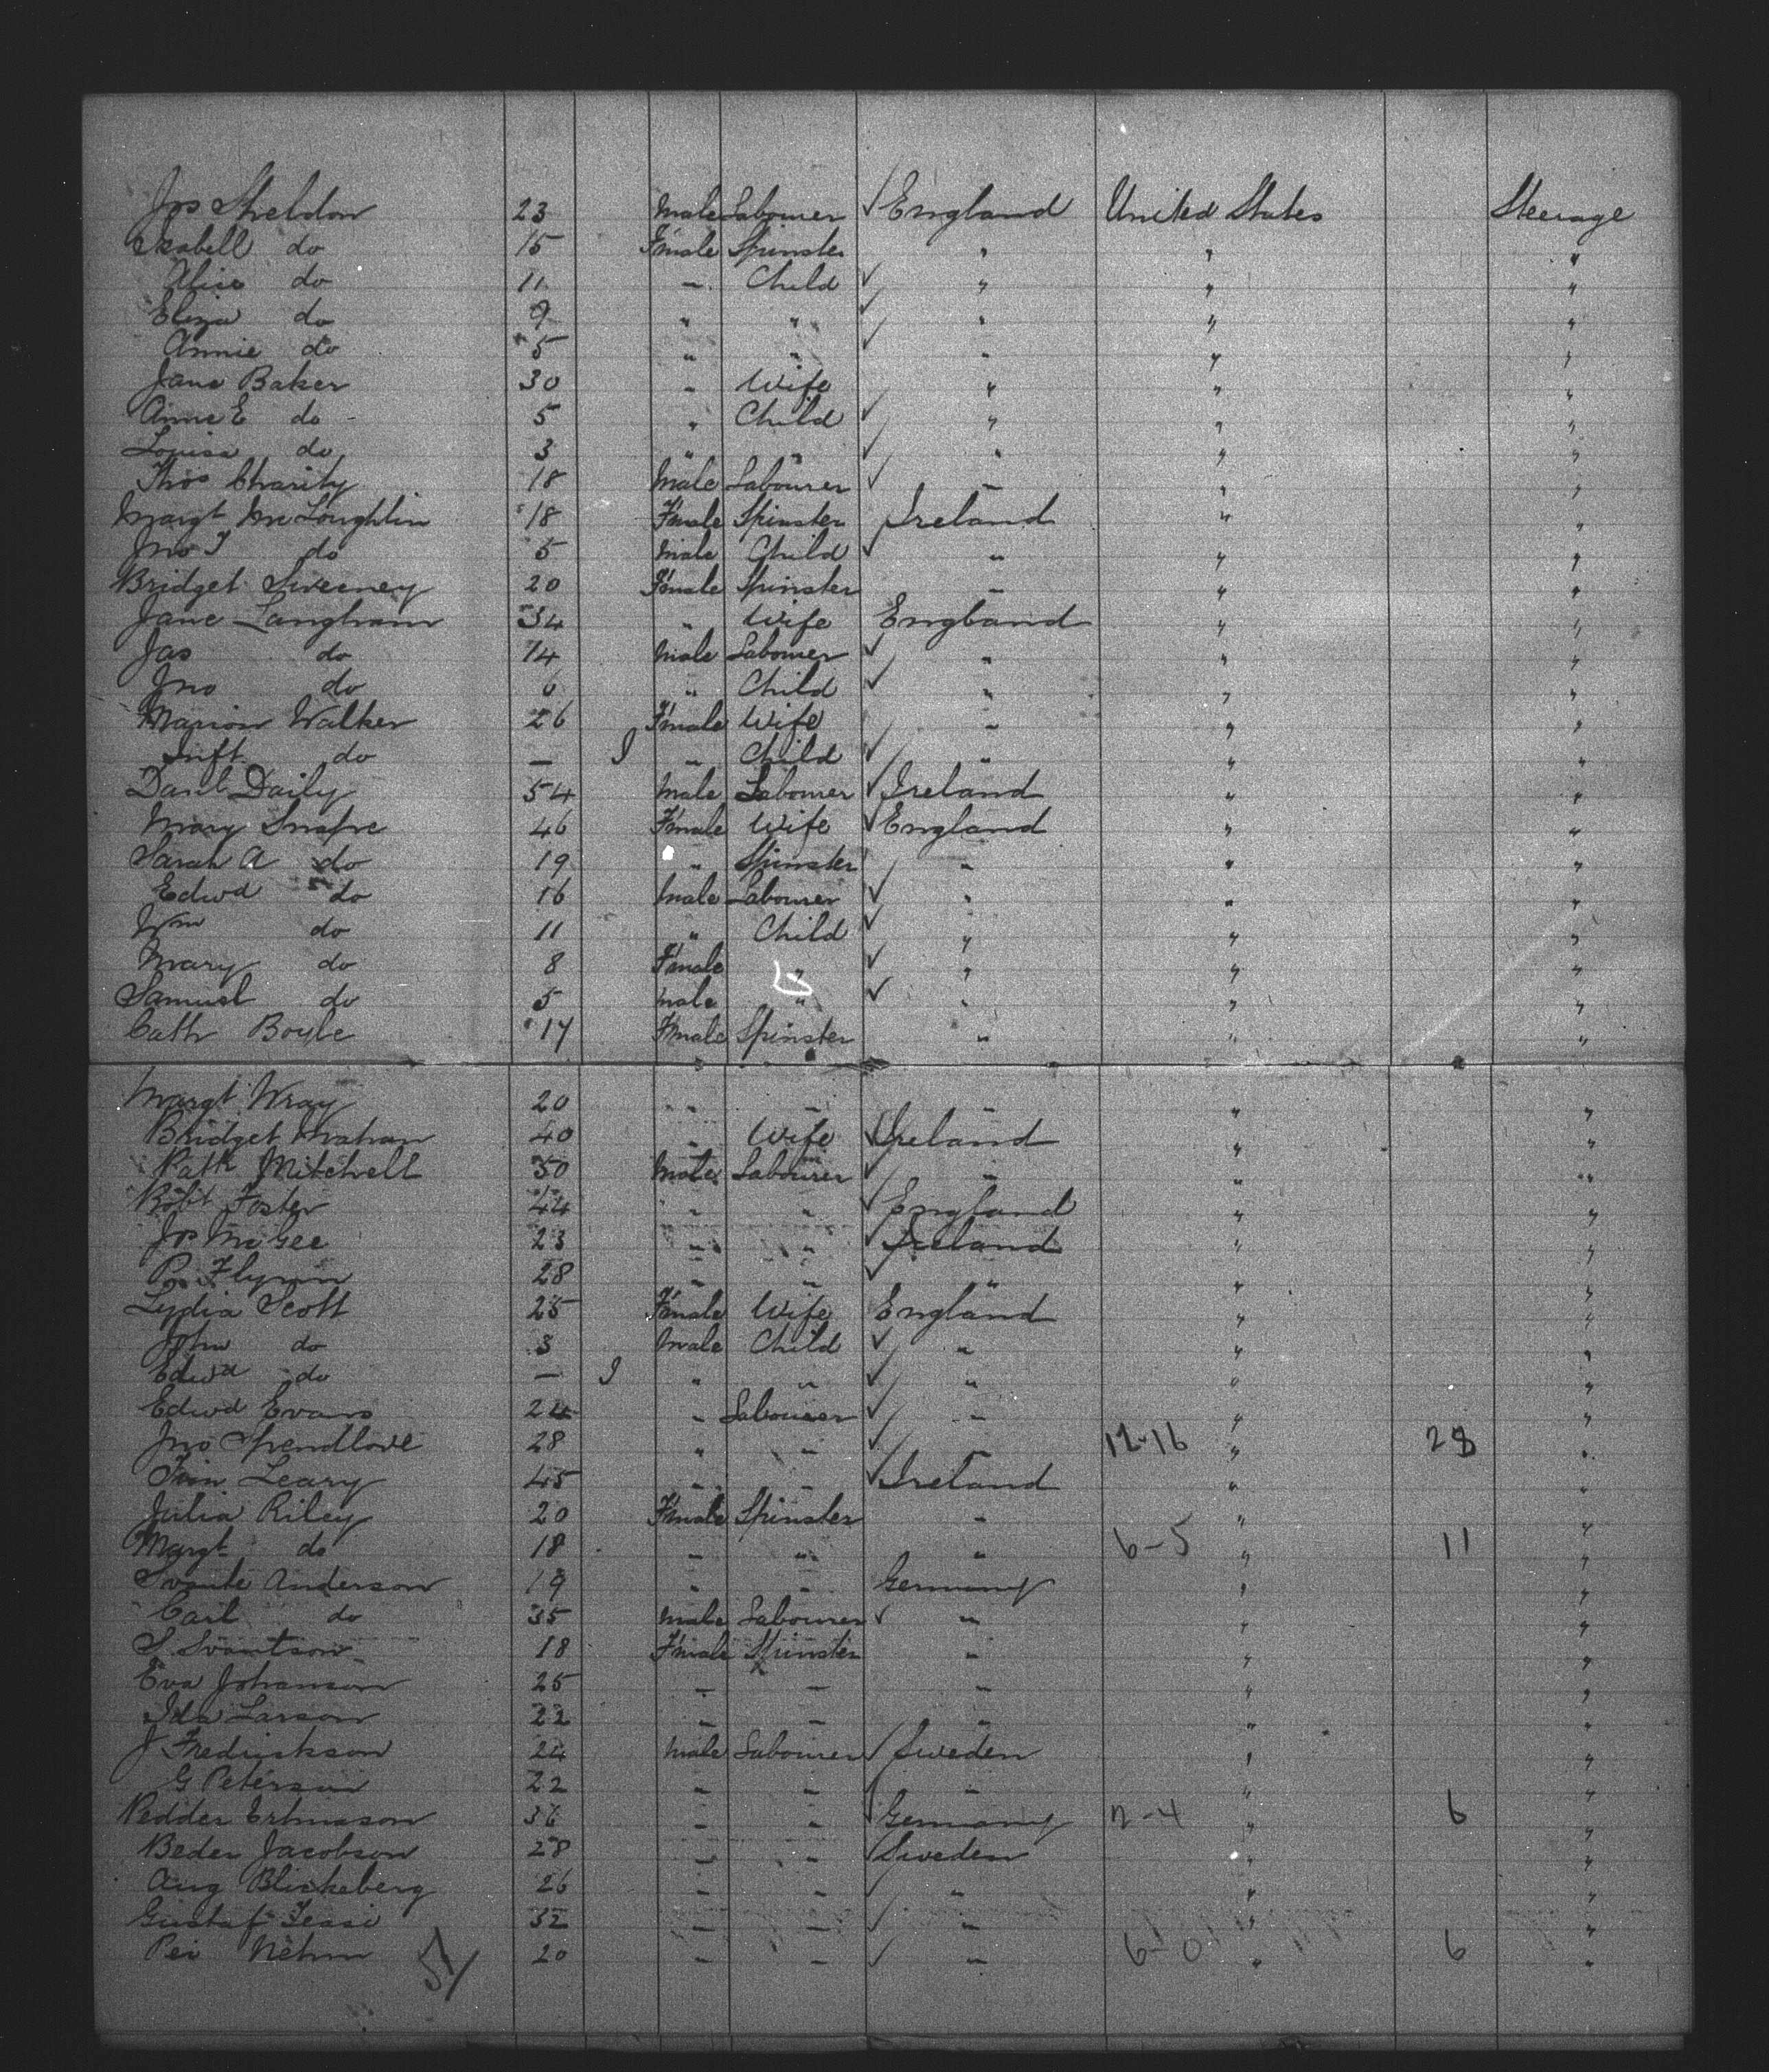 Jos Sheldon 23 Male Labourer ✓ England United States Steerage
Isabell do 15 Fmale Spinster " " "
Alice do 11 " Child ✓ " " "
Eliza do 9 " " ✓ " " "
Annie do 5 " " ✓ " " "
Jane Baker 30 " Wife " " "
Anne E do 5 " Child ✓ " " "
Louisa do 3 " " ✓ " " "
Thos Charity 18 Male Labourer ✓ " " "
Margt McLoughlin 18 Fmale Spinster Ireland " "
Jno T do 5 Male Child ✓ " " "
Bridget Sweeney 20 Fmale Spinster " " "
Jane Langham 34 " Wife England " "
Jas do 14 Male Labourer ✓ " " "
Jno do 6 " Child ✓ " " "
Marion Walker 26 Fmale Wife " " "
Inft do — I " Child ✓ " " "
Danl Daily 54 Male Labourer ✓ Ireland " "
Mary Snape 46 Fmale Wife ✓ England " "
Sarah A do 19 " Spinster " " "
Edwd do 16 Male Labourer ✓ " " "
Wm do 11 " Child ✓ " " "
Mary do 8 Fmale " ✓ " " "
Samuel do 5 Male " ✓ " " "
Cath Boyle 17 Fmale Spinster " " "
Margt Wray 20 " " " " "
Bridget 40 " Wife ✓ Ireland " "
Patk Mitchell 50 Male Labourer ✓ " " "
Robt Foster 44 " " ✓ England " "
Jos McGee 23 " " ✓ Ireland " "
P. Flynn 28 " " ✓ " " "
Lydia Scott 25 Fmale Wife England " "
John do 3 Male Child ✓ " " "
Edwd do — I " " ✓ " " "
Edwd Evans 24 " Labourer ✓ " " "
Jno Spendlove 28 " " ✓ " 12-16 " 28 "
Leary 45 " " ✓ Ireland " "
Julia Riley 20 Fmale Spinster " " "
Margt do 18 " " " 6-5 " 11 "
Svante Anderson 19 " " Germany " "
Carl do 35 Male Labourer ✓ " " "
S. Svantson 18 Fmale Spinster " " "
Eva Johanson 25 " " " " "
Ida Larson 22 " " " " "
J Fredrickson 24 Male Labourer ✓ Sweden " "
G Peterson 22 " " ✓ " " "
Pedder 36 " " ✓ Germany 2-4 " 6 "
Beder Jacobson 28 " " ✓ Sweden " "
Aug Blickeberg 26 " " ✓ " " "
Gustaf 32 " " ✓ " " "
Nehm 20 " " ✓ " 6-0 " 6 "
51